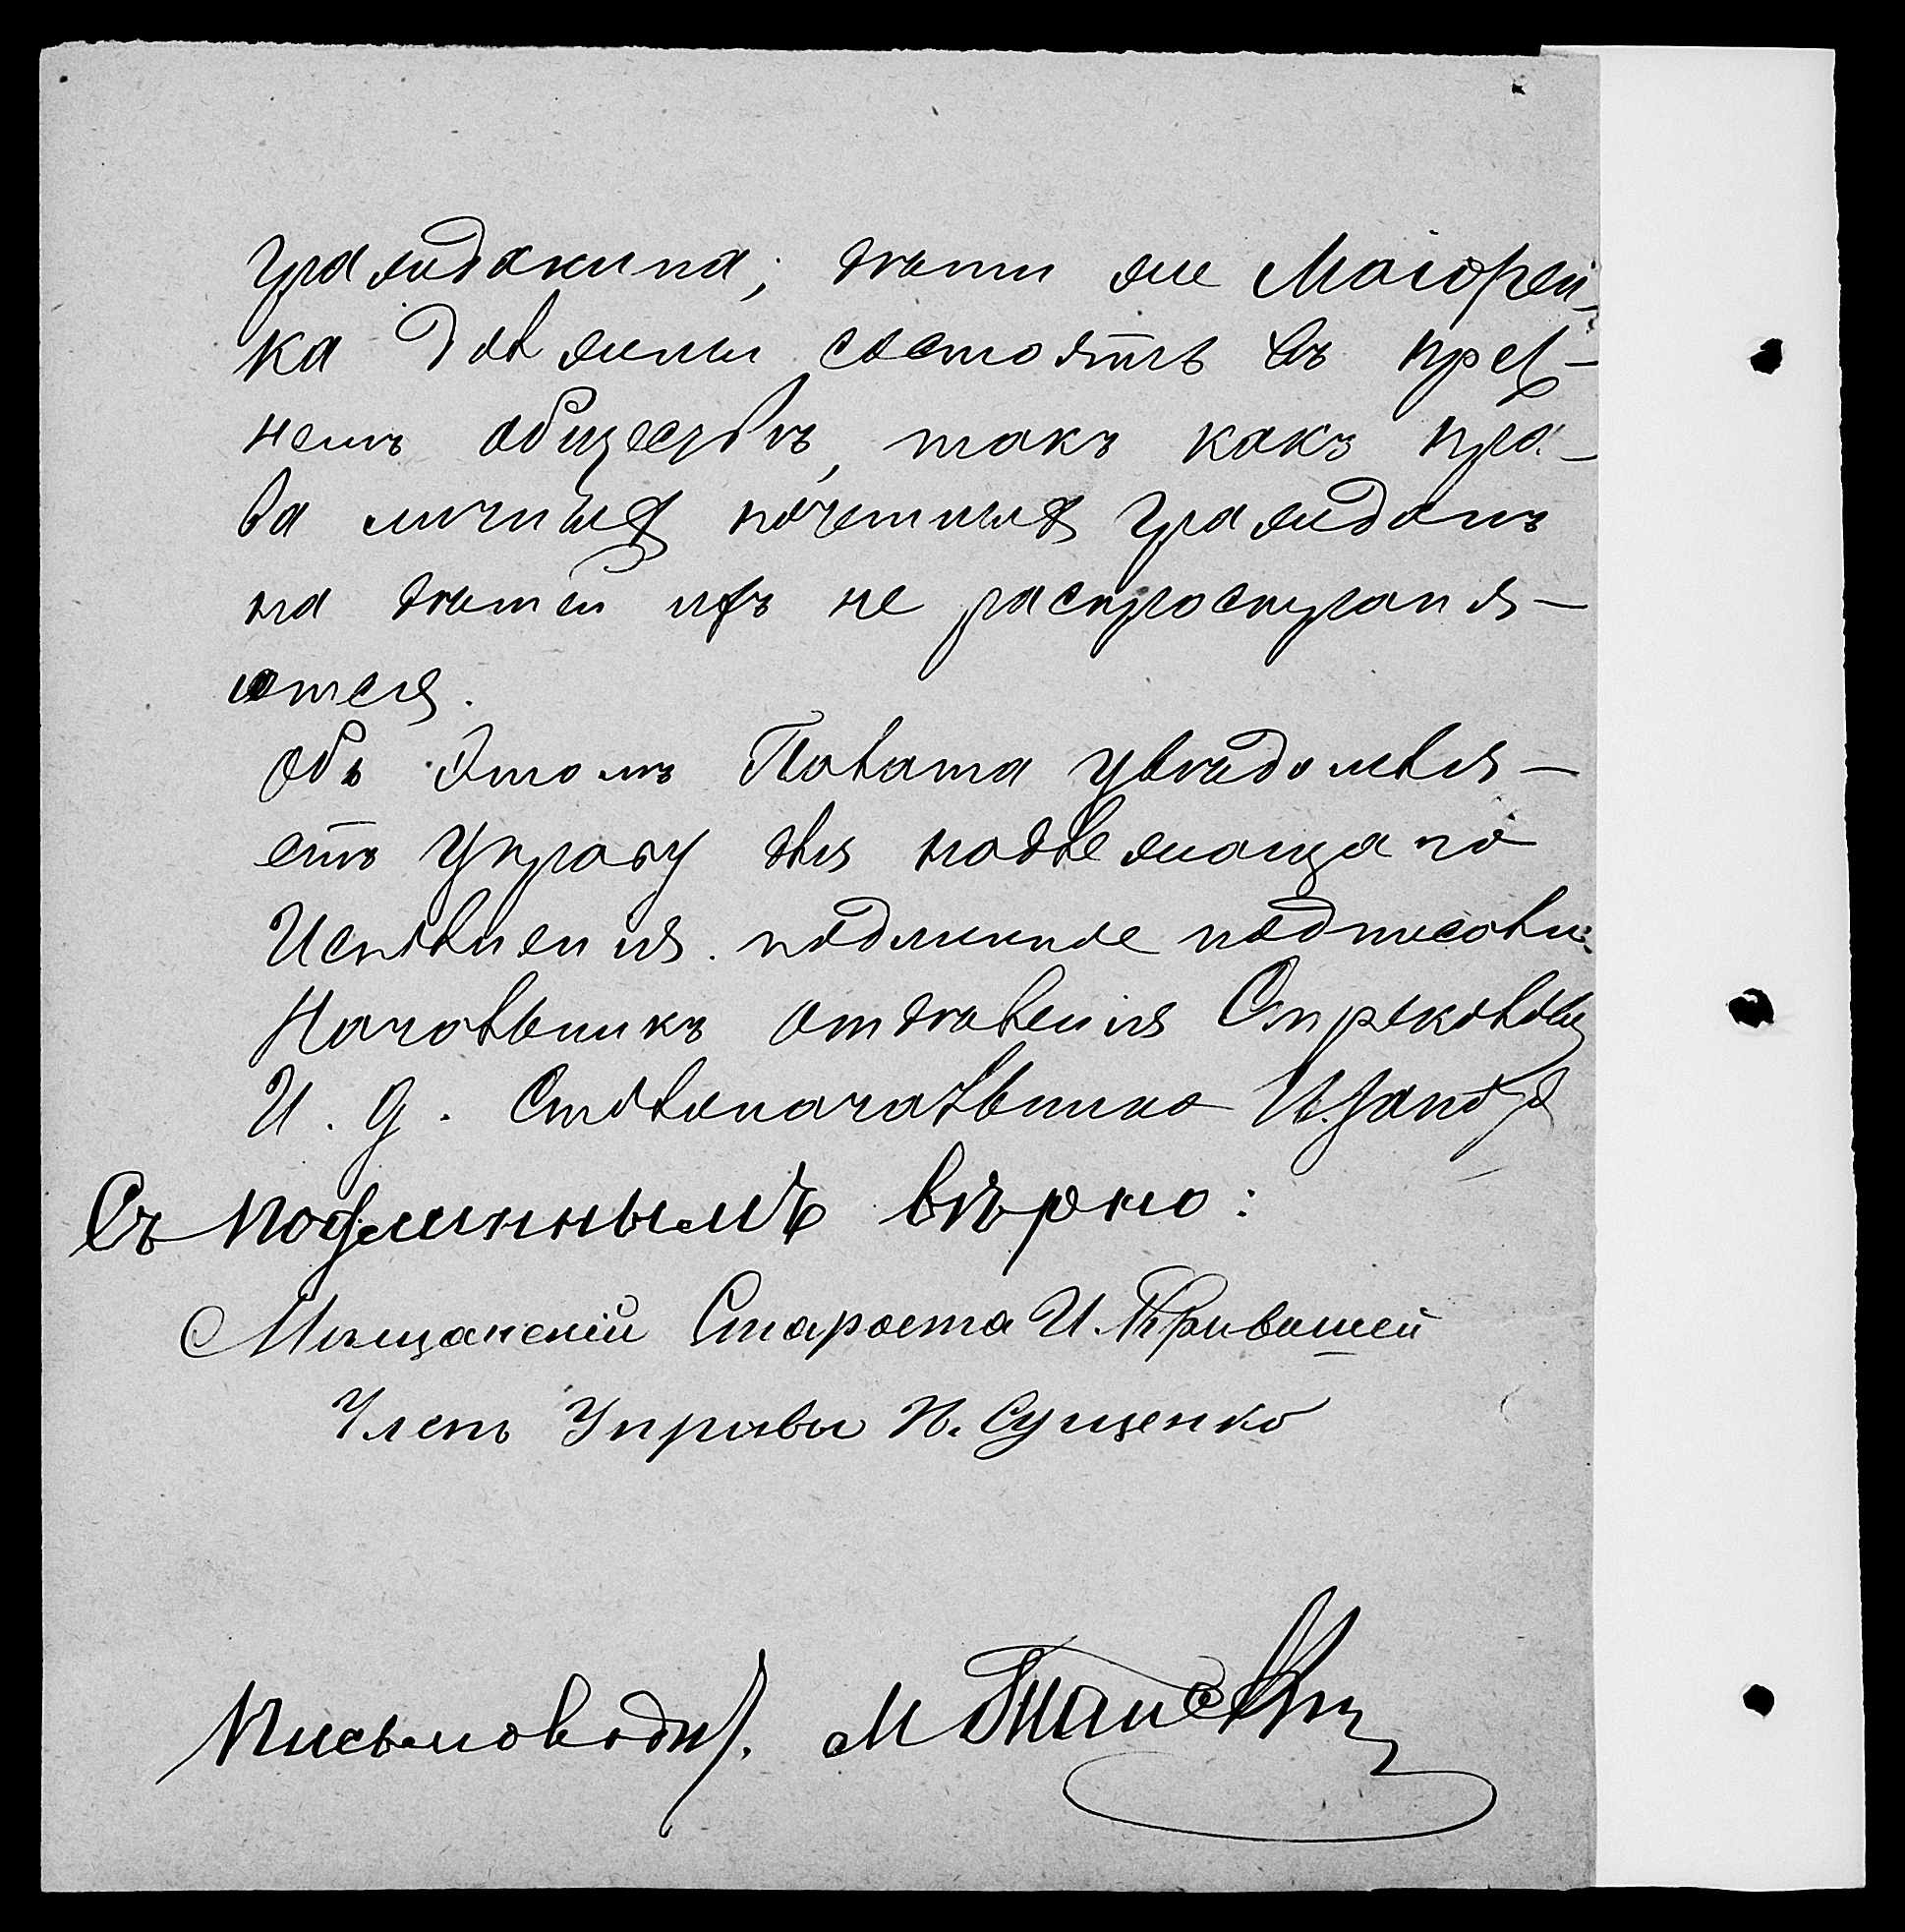 гражданина; дѣти же Маіорен-
ка должны состоять въ преж-
немъ обществѣ, такъ какъ пра-
ва личныхъ почетныхъ гражданъ
на дѣтей ихъ не распространя-
ются.
Объ этомъ Палата увѣдомля-
етъ Управу для надлежащаго
Исполненія. подлинное подписали:
Начальникъ отдѣленія
И. д. Столоначальника
Съ подлиннымъ вѣрно:
Мѣщанскій Староста И.
Членъ Управы И. Сущенко
Письмоводит. М